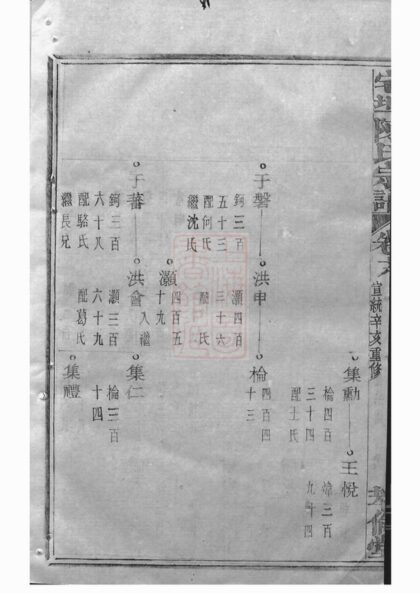 陳氏宗譜
卷六
宣統辛亥重修
集勳
王悅
棆四百
三十四
配王氏
煒二百
九十四
于磬
洪申
棆
鈳三百
五十三
配何氏
繼沈氏
灝四百
三十六
配
氏
四百四
十三
灝
四百五
十九
于蕃
洪會
入繼
集仁
鈳三百
六十八
配駱氏
繼長兄
灝三百
六十九
配葛氏
棆三百
十四
集禮